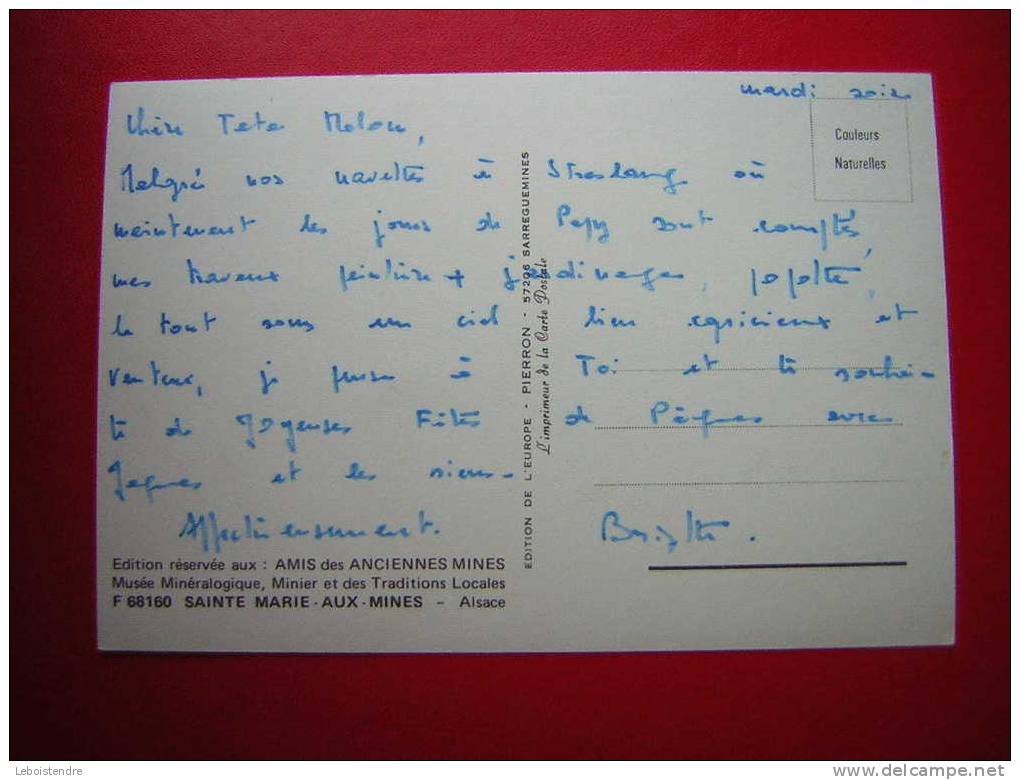 mardi soir
Couleurs
Naturelles
Chère Tata
Malgré nos navettes à Strasbourg où
maintenant les jours de Papy sont comptés,
mes travaux peinture + jardinages, popotte,
le tout sous un ciel bien capricieux et
venteux, je pense à Toi et te souhai-
te de Joyeuses Fêtes de Pâques avec
Jacques et les siens -
Affectueusement. Brigitte.
Edition réservée aux : AMIS des ANCIENNES MINES
Musée Minéralogique, Minier et des Traditions Locales
F 68160 SAINTE MARIE-AUX-MINES - Alsace
EDITION DE L'EUROPE - PIERRON - 57206 SARREGUEMINES
L'imprimeur de la Carte Postale
Leboistendre
www.delcampe.net